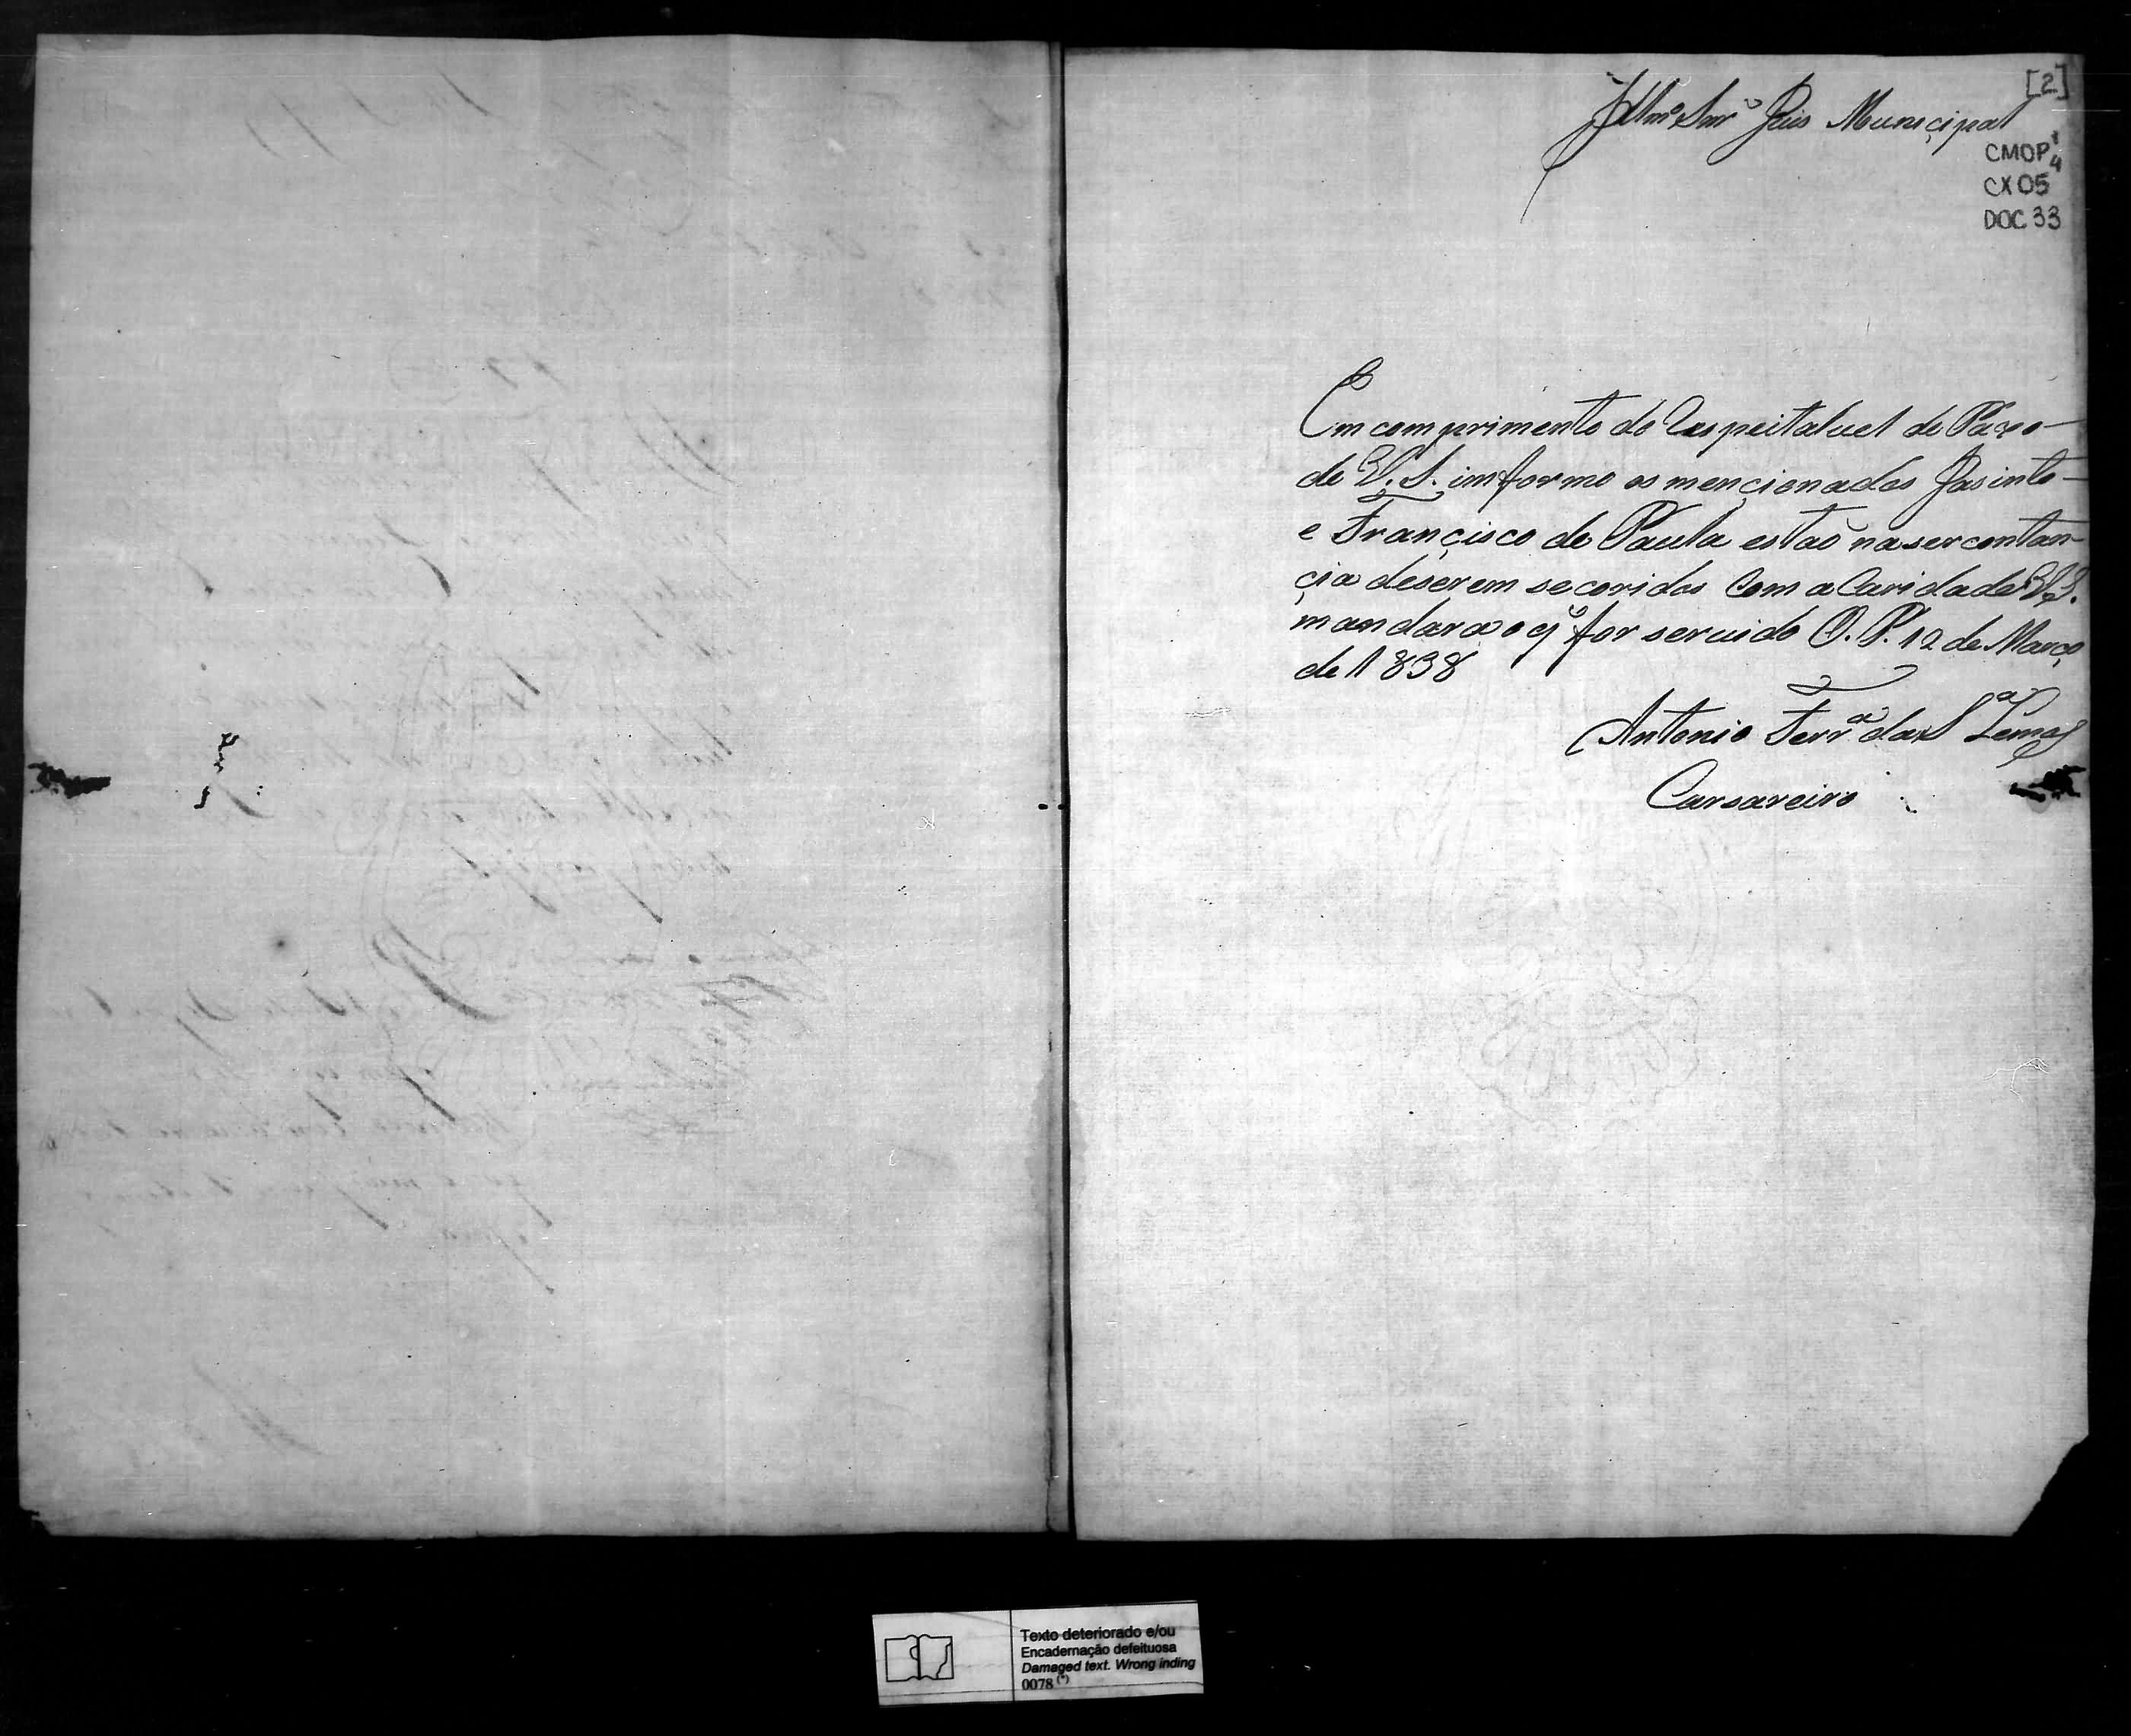 [2]
Illmº Snrº Juis Municipal
CMOP 1
4
CX 05
DOC 33
Em comprimento do Respeitaluel de Paxo
de V. S. imformo os mencionados Jasinto
e Francisco de Paula estaõ na sercontan-
cia deserem secoridos Com a Caridade V. S.
mandara o q̃ for seruido O. P. 12 de Março
de 1838
Antonio Ferrª da Sª Lemos
Carsareiro
Texto deteriorado e/ou
Encadernação defeituosa
Damaged text. Wrong inding
0078 (*)